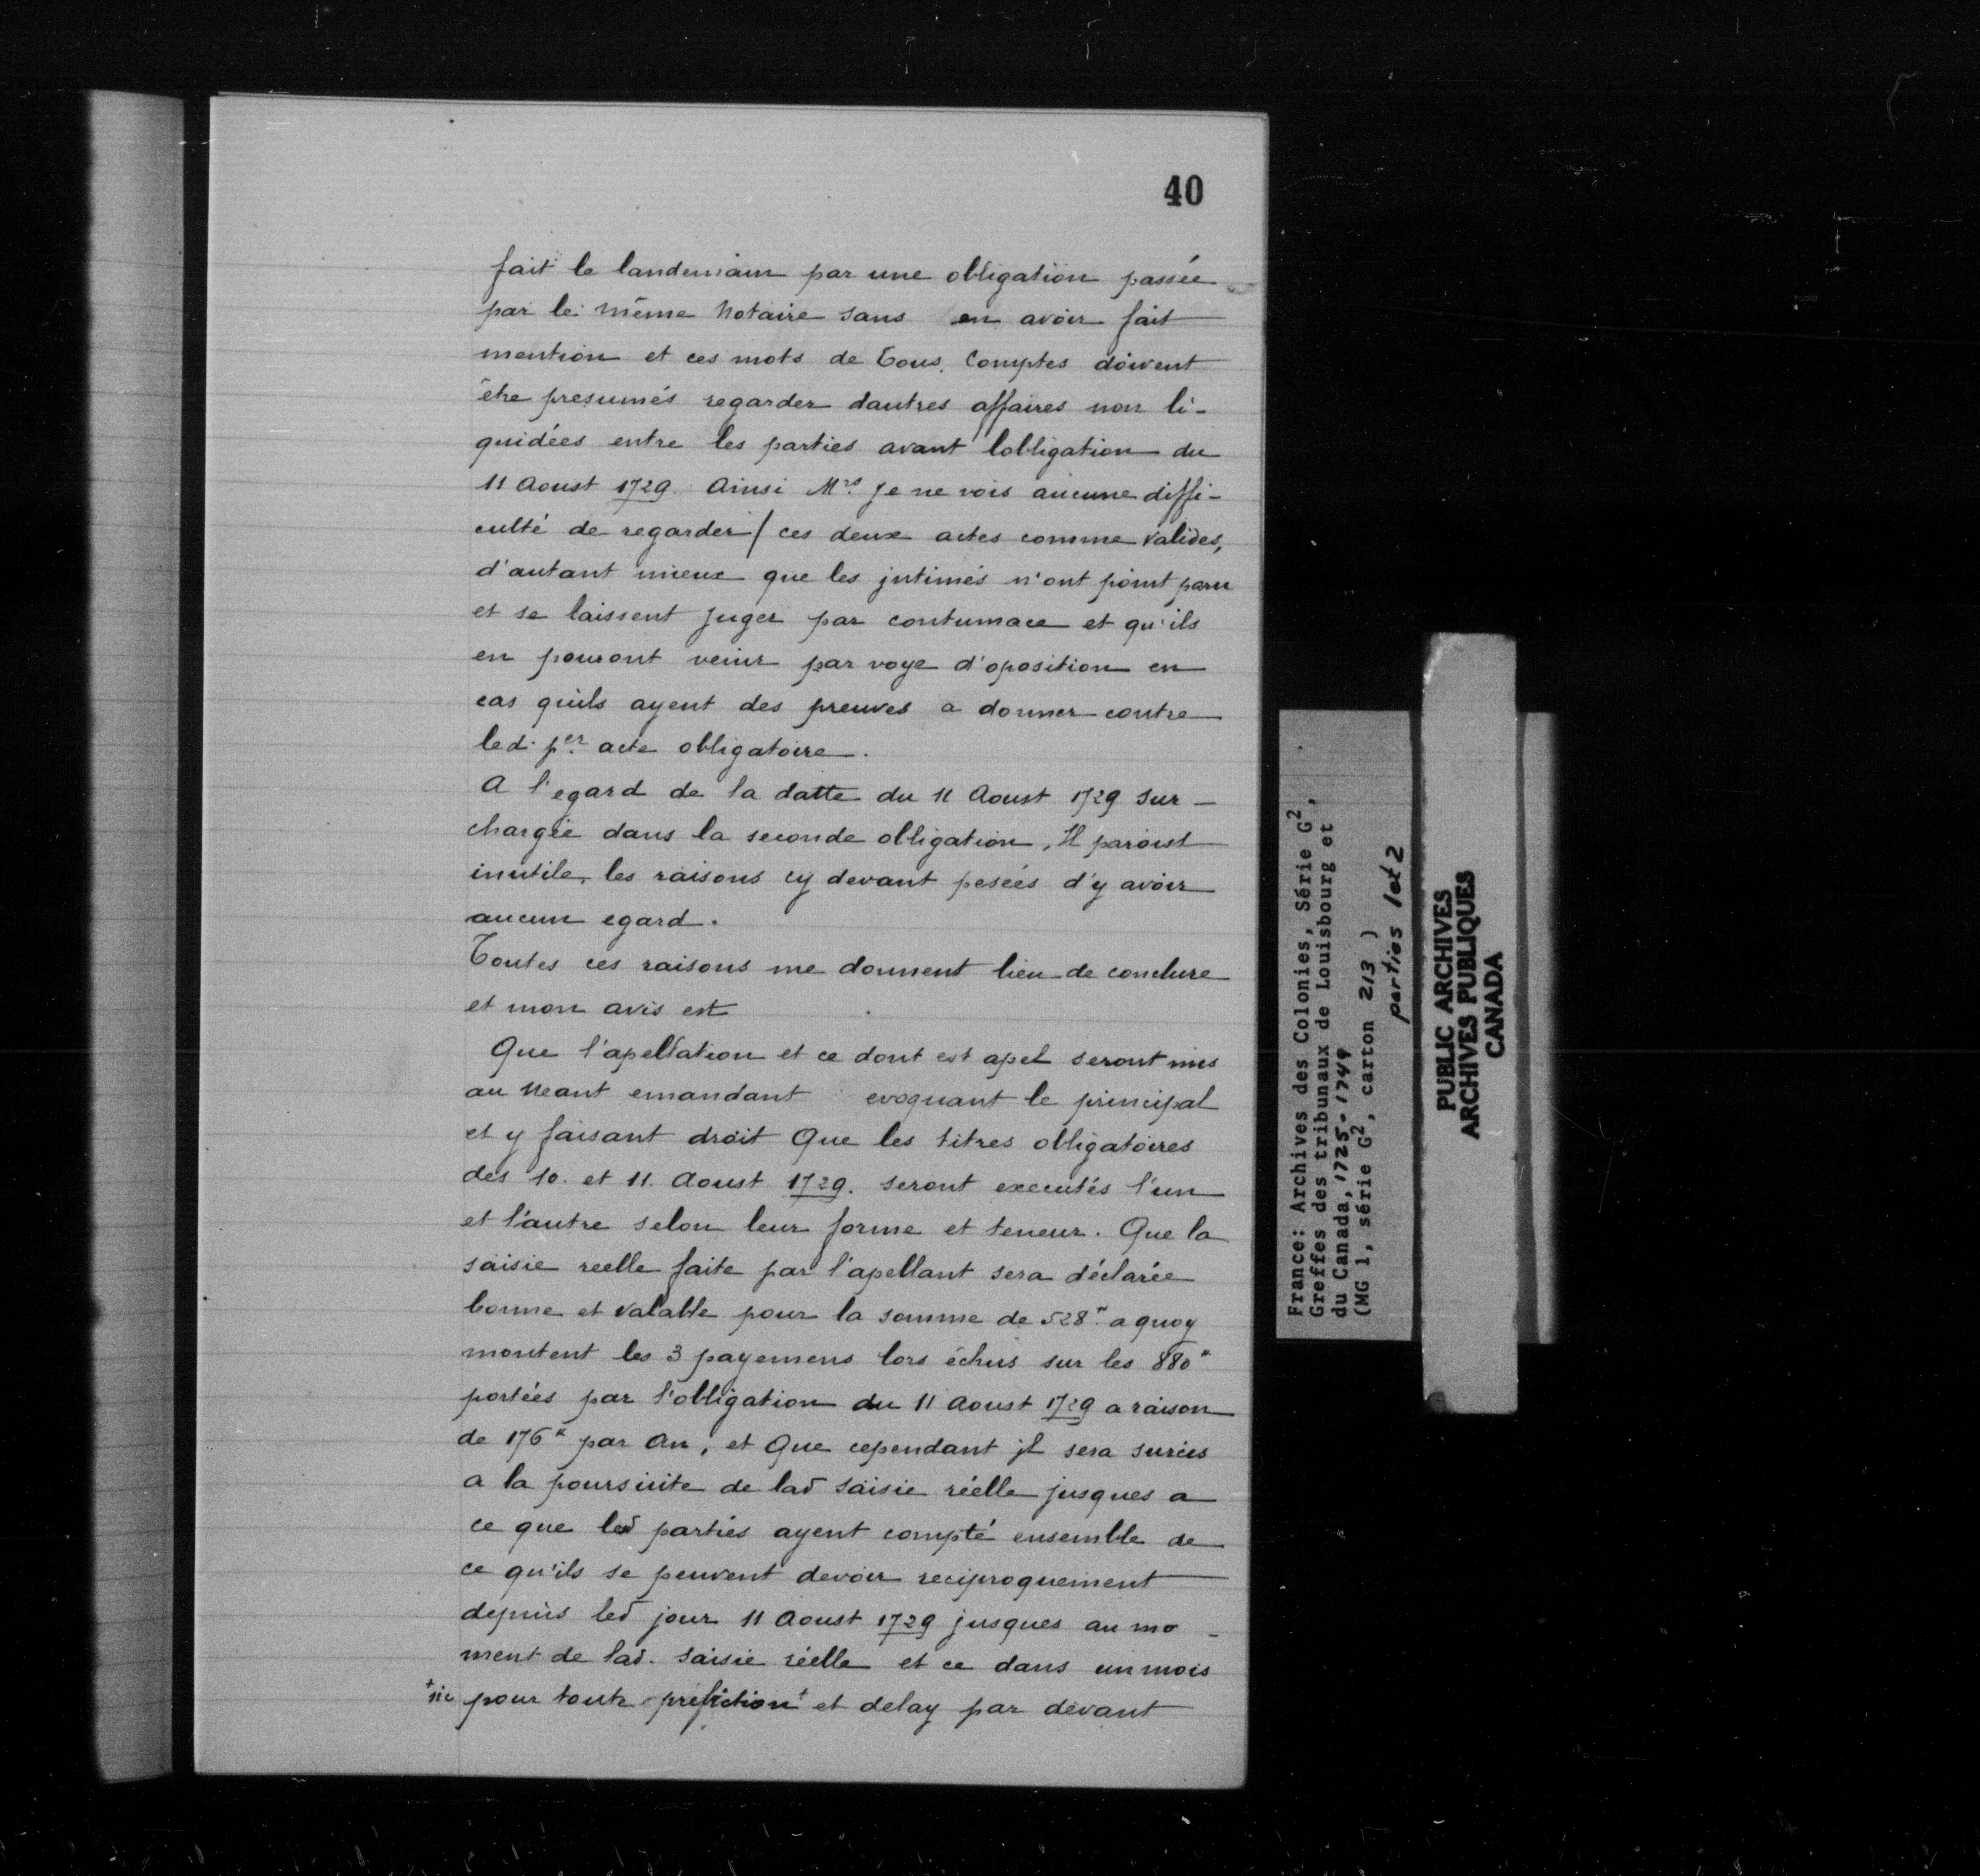 40
fait le landemain par une obligation passée
par le même Notaire sans en avoir fait
mention et ces mots de Tous Comptes doivent
être presumés regarder dautres affaires non li-
quidées entre les parties avant lobligation du
11 Aoust 1729. Ainsi Mrs. Je ne vois aucune diffi-
culté de regarder / ces deux actes comme valides,
d'autant mieux que les jntimés n'ont point paru
et se laissent Juger par contumace et qu'ils
en pouront venir par voye d'oposition en
cas quils ayent des preuves a donner contre
led. per. acte obligatoire.
A l'egard de la datte du 11 Aoust 1729 sur-
chargée dans la seconde obligation, Il paroist
inutile, les raisons cy devant pesées d'y avoir
aucun egard.
Toutes ces raisons me donnent lieu de conclure
et mon avis est
Que l'apellation et ce dont est apel seront mis
au Neant emandant evoquant le principal
et y faisant droit Que les titres obligatoires
des 10. et 11. Aoust 1729. seront executés l'un
et l'autre selon leur forme et teneur. Que la
saisie reelle faite par l'apellant sera déclarée
bonne et valable pour la somme de 528" a quoy
montent les 3 payemens lors échus sur les 880"
portées par l'obligation du 11 Aoust 1729 a raison
de 176" par An, et Que cependant jl sera surcis
a la poursuite de lad saisie réelle jusques a
ce que led parties ayent compté ensemble de
ce qu'ils se peuvent devoir reciproquement
depuis led jour 11 Aoust 1729 jusques au mo-
ment de lad. saisie réelle et ce dans un mois
+sic pour toute prefiction+ et delay par devant
France: Archives des Colonies, Série G2,
Greffes des tribunaux de Louisbourg et
du Canada, 1725-1749
(MG 1, série G2, carton 213 )
parties 1et 2
PUBLIC ARCHIVES
ARCHIVES PUBLIQUES
CANADA